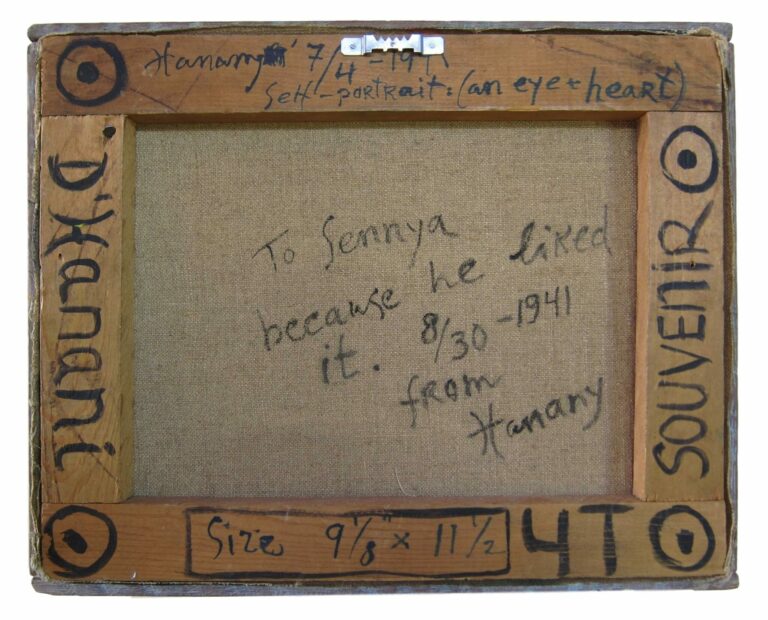 Hanany 7/4-1941
Self-portrait: (an eye + heart)
D'Hanani
To Sennya
because he liked
it. 8/30-1941
from
Hanany
SOUVENIR
Size 9 1/8" x 11 1/2
4T